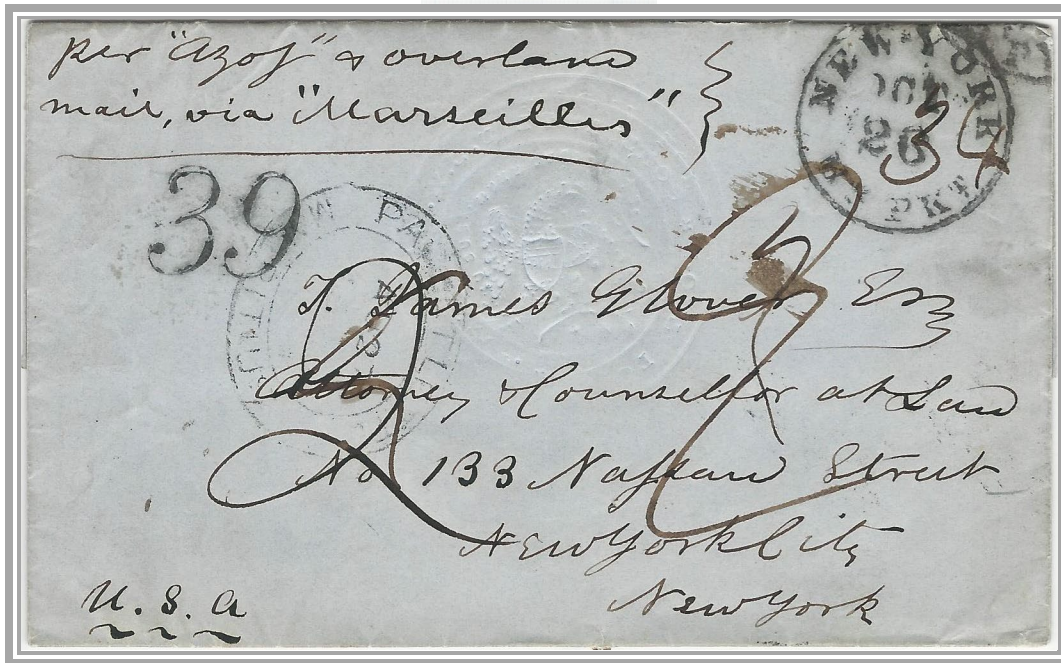 per "Azof" & overland
mail, via "Marseilles"
NEW YORK
OCT
26
PKT
34
39
PA
T. James Glover Esq
Attorney & Counsellor at Law
No 133 Nassau Street
New York City
New York
U. S. A